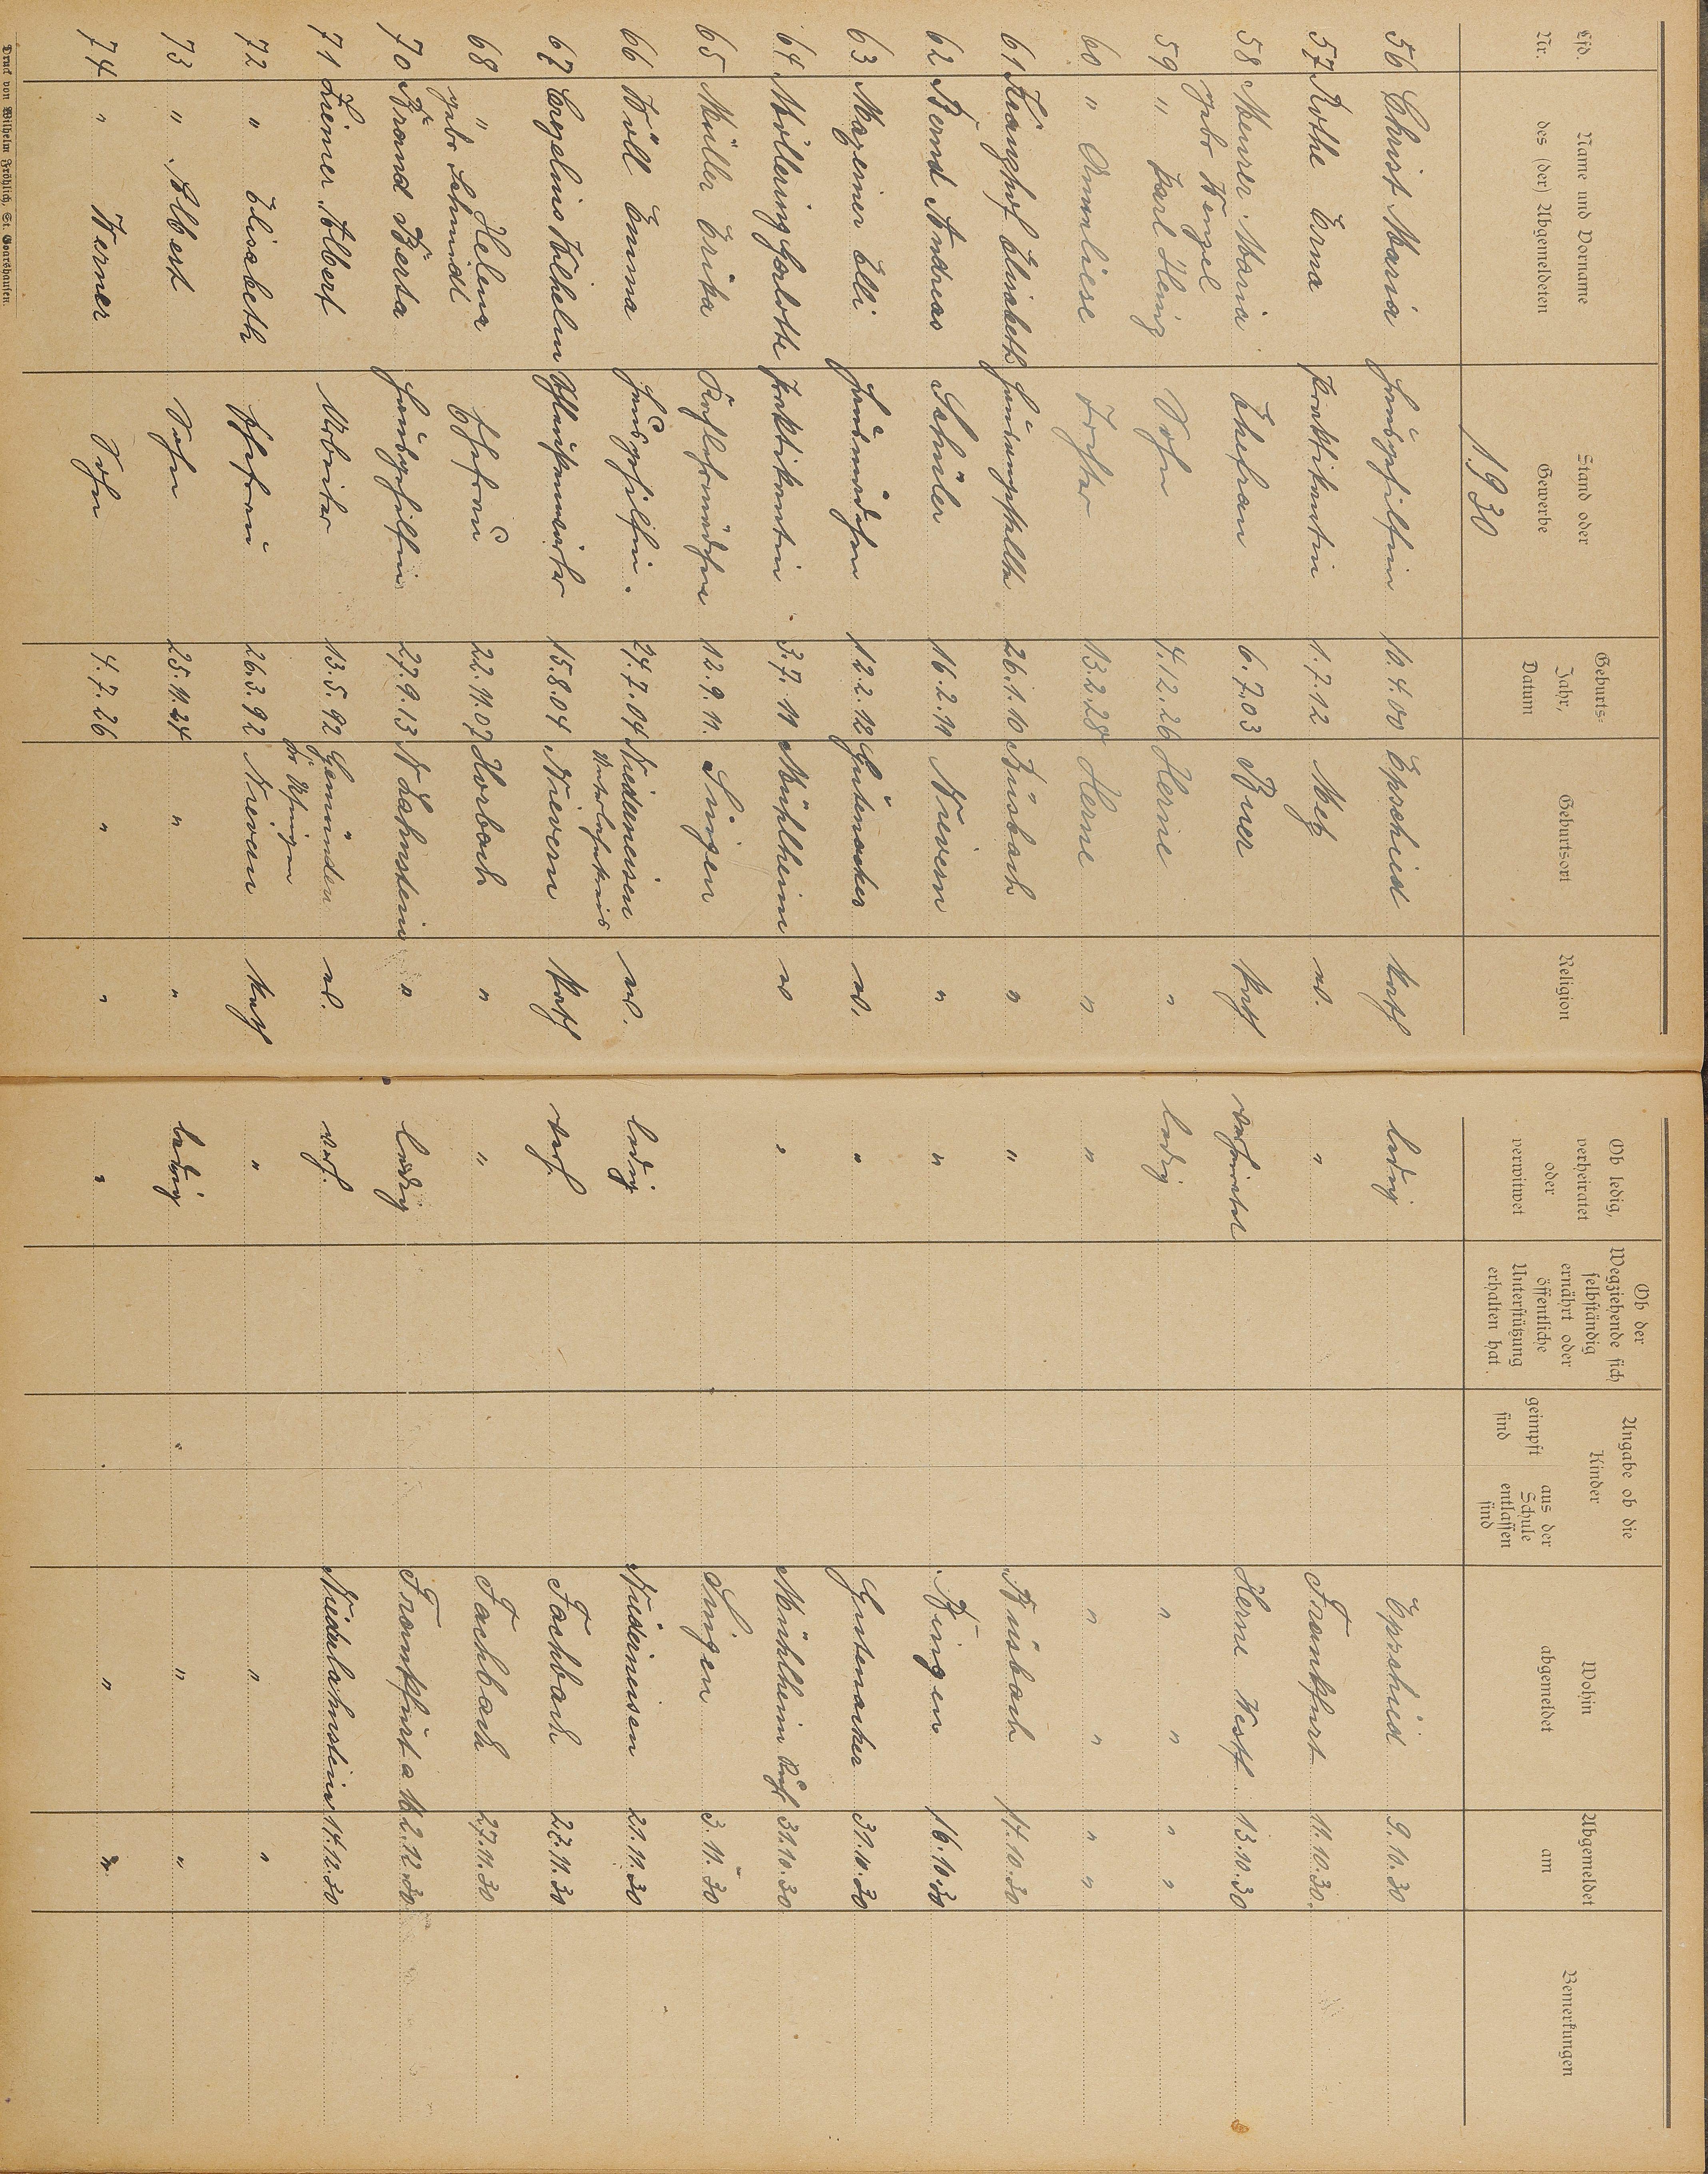 Lfd. Nr. Name und Vorname des (der) Abgemeldeten Stand oder Gewerbe Geburts-Jahr, Datum Geburtsort Religion Ob ledig, verheiratet oder verwitwet Ob der Wegziehende sich selbständig ernährt oder öffentliche Unterstützung erhalten hat Angabe ob die Kinder geimpft sind aus der Schule entlassen sind Wohin abgemeldet Abgemeldet am Bemerkungen
1930
56 Christ Maria Hausgehilfin 10.4.00 Epscheid kath ledig Epscheid 9.10.30
57 Rothe Erna Praktikantin 1.7.12 Metz ev. " Frankfurt 11.10.30.
58 Meurer Maria Ehefrau 6.7.03 Buer kath. verheiratet Herne Westf. 13.10.30
gebr Wenzel
59 " Karl Heinz Sohn 4.12.26 Herne " ledig " " " "
60 " Annliese Tochter 13.2.28 Herne " " " " " "
61 Elisabeth 26.1.10 Büsbach " " Büsbach 14.10.30
62 Bernd Andreas Schüler 16.2.11 Nievern " " Bingen 16.10.30
63 Elli Hausmädchen 12.2.12 Gutenacker ev. " Gutenacker 31.10.30
64 Möllering Praktikantin 3.7.11 Mühlheim ev " Mühlheim Ruhr 31.10.30
65 Müller Erika 12.9.11. Singen Singen 3.11.30
66 Böll Emma Hausgehilfin. 24.7.04 Niederneisen ev. ledig Niederneisen 21.11.30
Unterlahnkreis
67 Wilhelm 15.8.04 Nievern kath verh. Fachbach 27.11.30
68 " Helena Ehefrau 22.11.07 Horbach " " Fachbach 27.11.30
gebr Schmidt
70 Brand Berta Hausgehilfin 27.9.13 N Lahnstein " ledig Frankfurt a M 2.12.30
71 Liemer Albert Arbeiter 13.5.92 Gemünden ev. verh. Niederlahnstein 17.12.30
Kr Usingen
72 " Elisabeth Ehefrau 26.3.92 Nievern kath " " "
73 " Albert Sohn 25.11.24 " " ledig " "
74 " Werner Sohn 4.7.26 " " " " "
Druck von Wilhelm Fröhlich, St. Goarshausen.